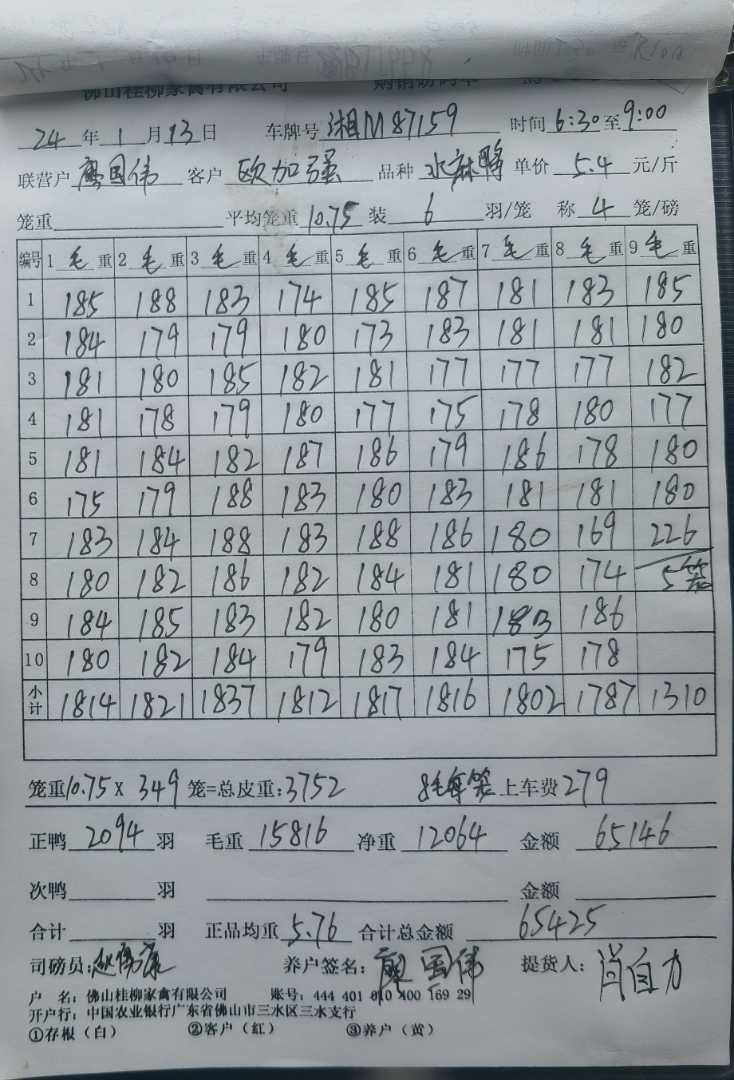 佛山桂柳家禽有限公司
24 年 1 月 13 日 车牌号 湘M87159 时间 6:30 至 9:00
联营户 廖国伟 客户 欧加强 品种 水麻鸭 单价 5.4 元/斤
笼重 平均笼重 10.75 装 6 羽/笼 称 4 笼/磅
编号 1 毛 重 2 毛 重 3 毛 重 4 毛 重 5 毛 重 6 毛 重 7 毛 重 8 毛 重 9 毛 重
1 185 188 183 174 185 187 181 183 185
2 184 179 179 180 173 183 181 181 180
3 181 180 185 182 181 177 177 177 182
4 181 178 179 180 177 175 178 180 177
5 181 184 182 187 186 179 186 178 180
6 175 179 188 183 180 183 181 181 180
7 183 184 188 183 188 186 180 169 226
8 180 182 186 182 184 181 180 174 5笼
9 184 185 183 182 180 181 183 186
10 180 182 184 179 183 184 175 178
小计 1814 1821 1837 1812 1817 1816 1802 1787 1310
笼重 10.75 X 349 笼=总皮重: 3752 8毛每笼 上车费 279
正鸭 2094 羽 毛重 15816 净重 12064 金额 65146
次鸭 羽 金额
合计 羽 正品均重 5.76 合计总金额 65425
司磅员: 养户签名: 廖国伟 提货人: 肖自力
户 名: 佛山桂柳家禽有限公司 账号: 444 401 010 400 169 29
开户行: 中国农业银行广东省佛山市三水区三水支行
①存根（白） ②客户（红） ③养户（黄）